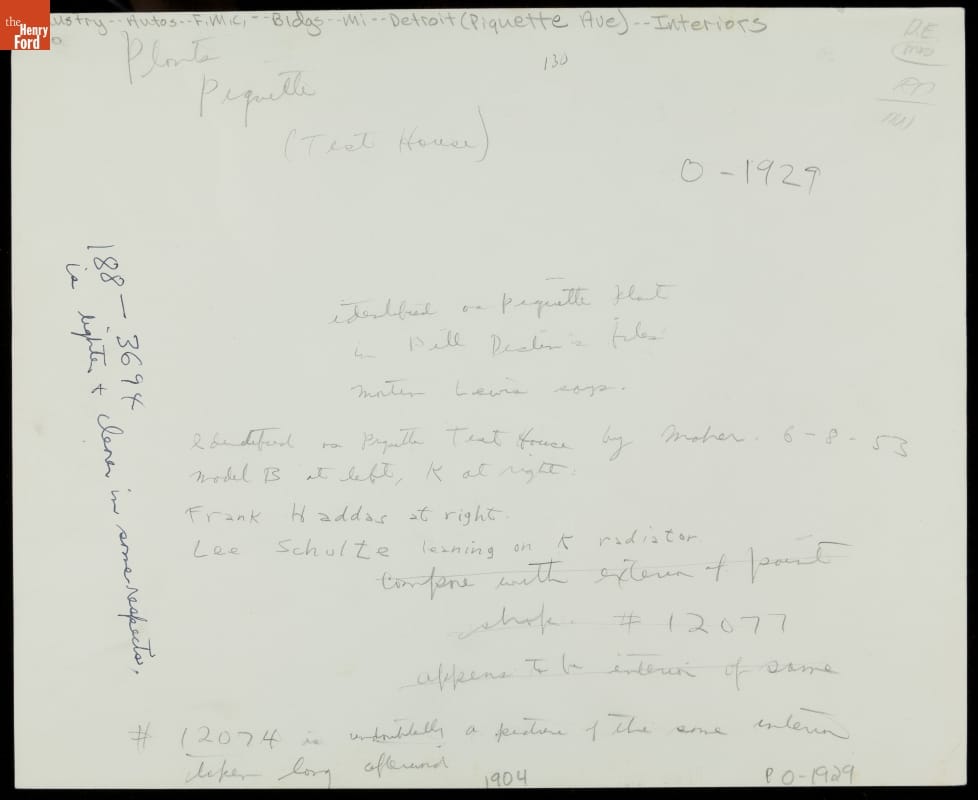 the Henry Ford
ustry--Autos--F.M.C.--Bldgs--Mi--Detroit (Piquette Ave)--Interiors
Plants
Piquette
(Test House)
130
D.E.
O-1929
188-3694
is lighter + clearer in some respects.
identified as Piquette Plant
in Bill files
Lewis says.
Identified as Piquette Test House by Maher. 6-8-53
Model B at left, K at right.
Frank Haddas at right.
Lee Schultz leaning on K radiator
Compare with exterior of paint
shop. # 12077
appears to be interior of same
# 12074 is undoubtedly a picture of the same interior
taken long afterward
1904
P O-1929